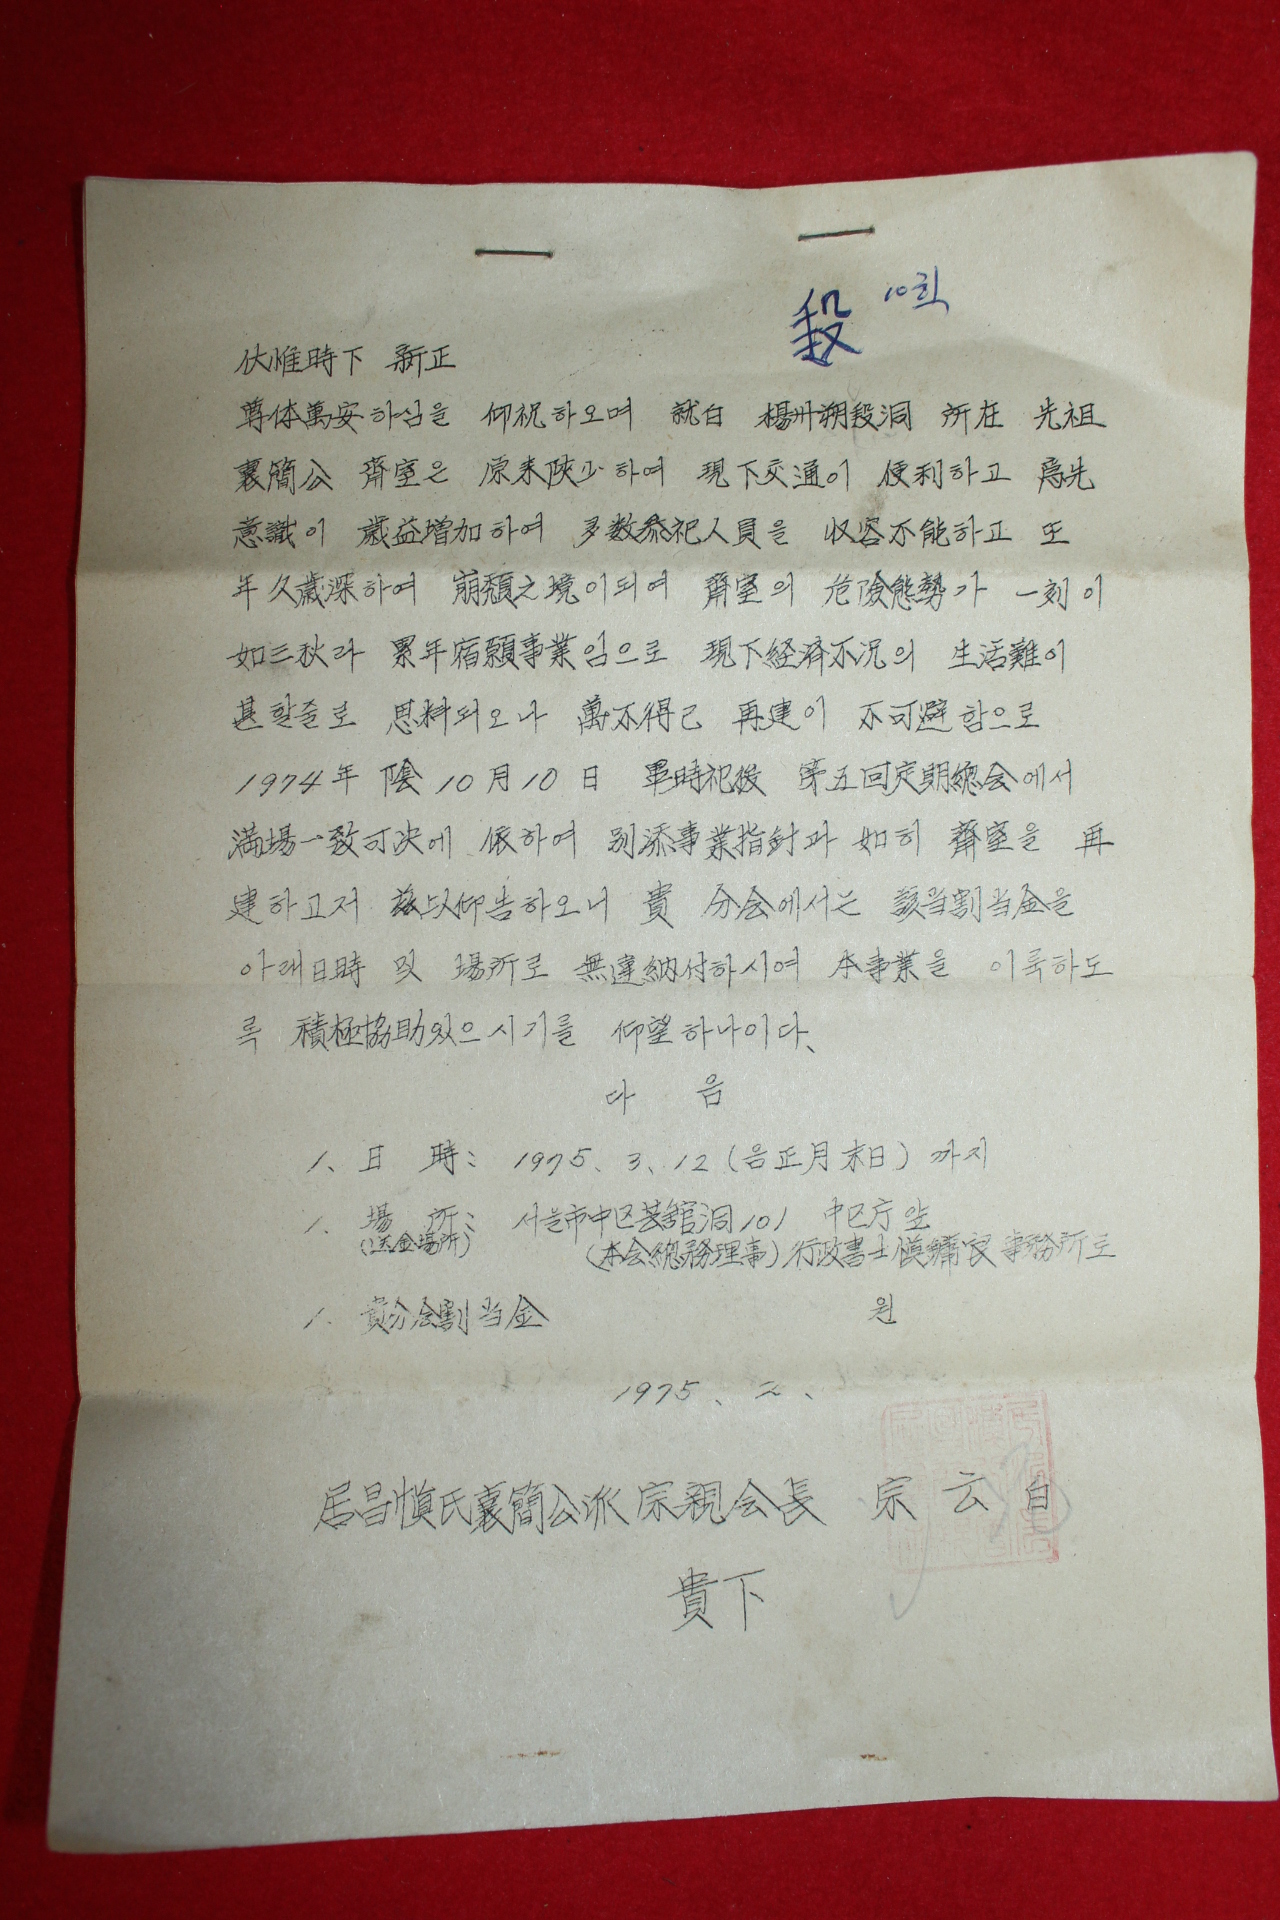 10회
伏惟時下 新正
尊体萬安하심을 仰祝하오며 就白 楊州朔段洞 所在 先祖
襄簡公 齋室은 原来陜少하여 現下交通이 便利하고 爲先
意識이 歲益增加하여 多数参祀人員을 収容不能하고 또
年久歲深하여 崩頹之境이되여 齋室의 危險態勢가 一刻이
如三秋라 累年宿願事業임으로 現下経済不况의 生活難이
甚할줄로 思料되오나 萬不得已 再建이 不可避함으로
1974年 陰10月10日 畢時祀後 第五回定期總会에서
満場一致可決에 依하여 別添事業指針과 如히 齋室을 再
建하고저 玆以仰告하오니 貴 分会에서는 該当割当金을
아래日時 및 場所로 無違納付하시여 本事業을 이룩하도
록 積極協助있으시기를 仰望하나이다、
다 음
1、日 時： 1975、3、12（음正月末日）까지
1、場 所： 서울市中区芸舘洞101 中区庁앞
（送金場所） （本会總務理事）行政書士慎鏞宸事務所로
1、貴分会割当金 원
1975、2、
居昌愼氏襄簡公派宗親会長 宗云白
貴下